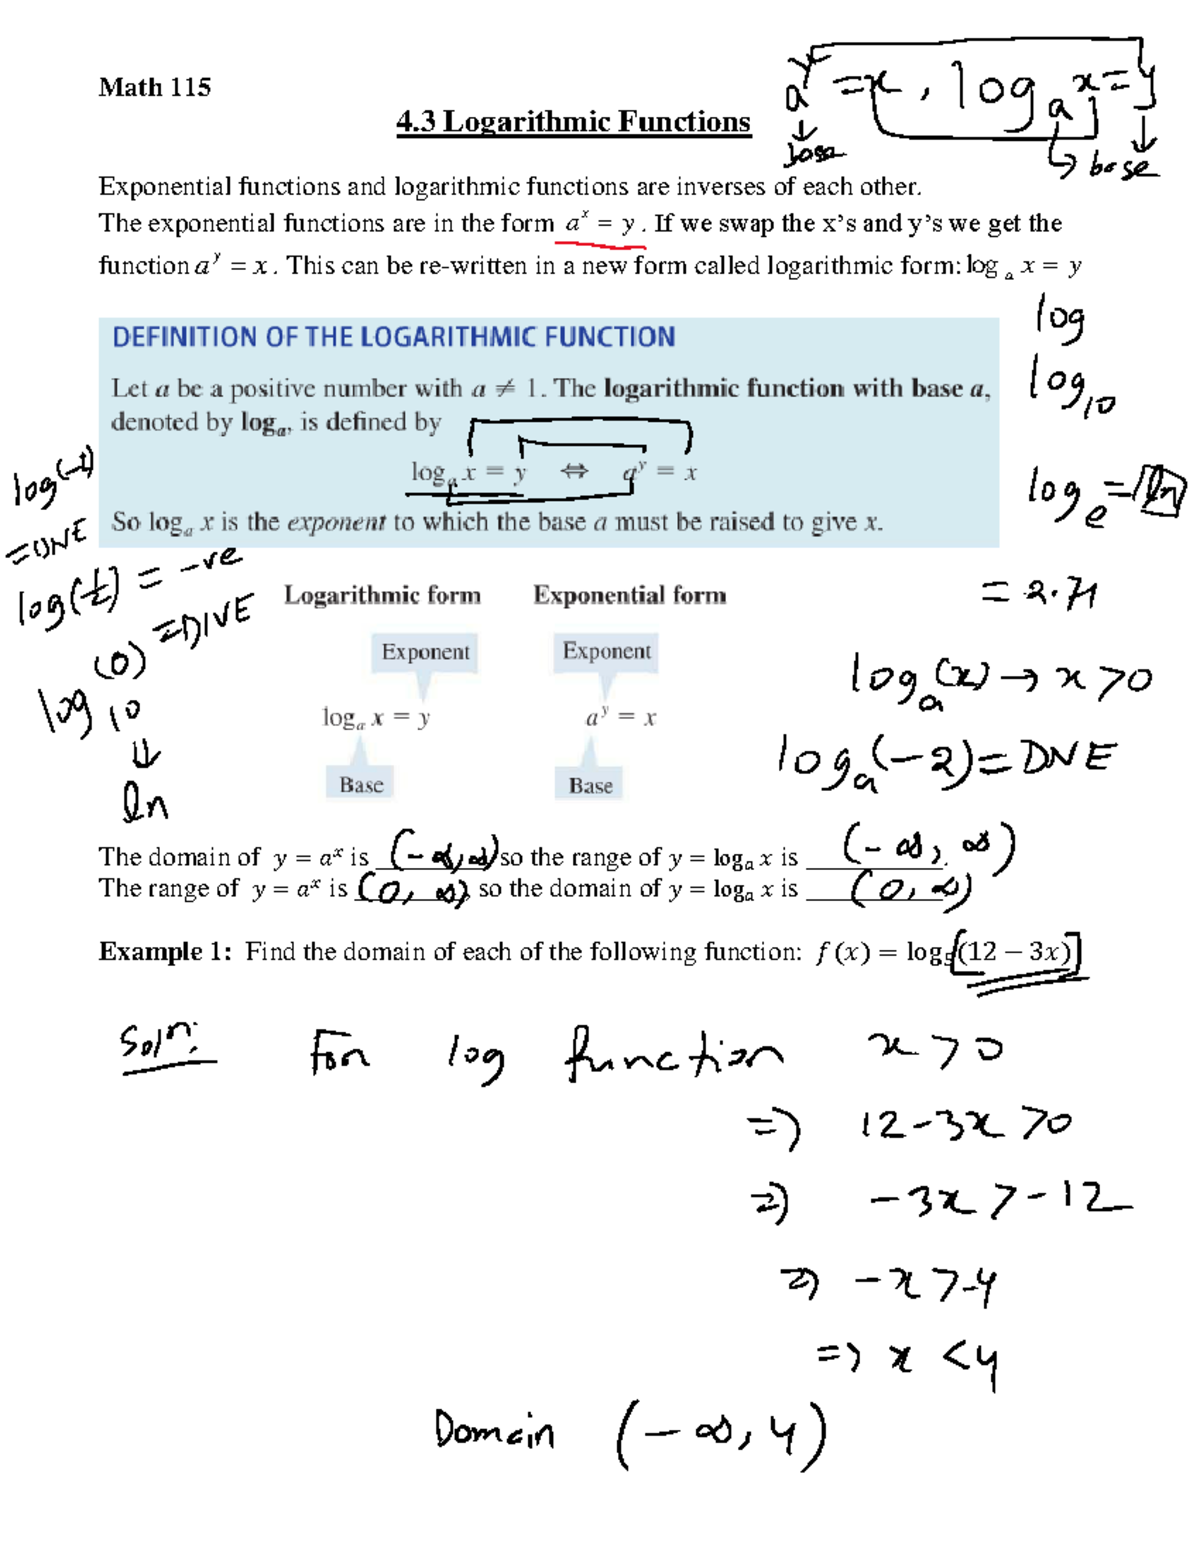 Math 115
a^y = x , log_a x = y
base
base
4.3 Logarithmic Functions
Exponential functions and logarithmic functions are inverses of each other.
The exponential functions are in the form a^x = y . If we swap the x's and y's we get the
function a^y = x . This can be re-written in a new form called logarithmic form: log_a x = y
log
log_10
log_e = ln
= 2.71
DEFINITION OF THE LOGARITHMIC FUNCTION
Let a be a positive number with a ≠ 1. The logarithmic function with base a,
denoted by log_a, is defined by
log_a x = y ⇔ a^y = x
So log_a x is the exponent to which the base a must be raised to give x.
log(-1)
= DNE
log(½) = -ve
log_10 (0) = DNE
⇓
ln
Logarithmic form Exponential form
Exponent Exponent
log_a x = y a^y = x
Base Base
log_a(x) → x > 0
log_a(-2) = DNE
The domain of y = a^x is (-∞, ∞) so the range of y = log_a x is (-∞, ∞).
The range of y = a^x is (0, ∞), so the domain of y = log_a x is (0, ∞)
Example 1: Find the domain of each of the following function: f (x) = log_5[(12 – 3x)]
Soln:
For log function x > 0
⇒ 12 - 3x > 0
⇒ -3x > -12
⇒ -x > -4
⇒ x < 4
Domain (-∞, 4)